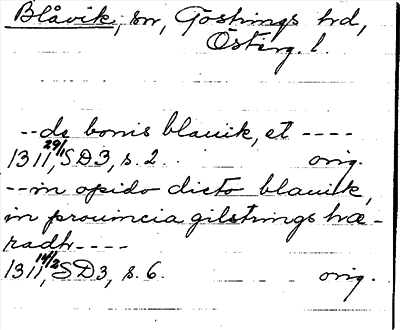 Blåvik, sn, Göstrings hd,
Österg. l.
--de bonis blauik, et ----
1311 29/1, SD3, s. 2. orig.
--in opido dicto blauitk,
in prouincia gilstrings hæ-
radh----
1311 14/2, SD3, s. 6. orig.